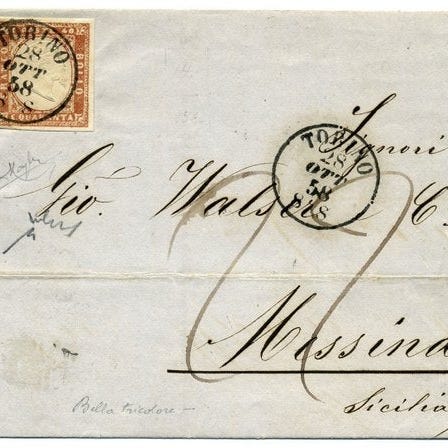 TORINO
28
OTT
58
8 S
C. QUARANTA
TORINO
28
OTT
58
8 S
Signori
Gio. Walser & C.
Messina
Sicilia
Bella tricolore —